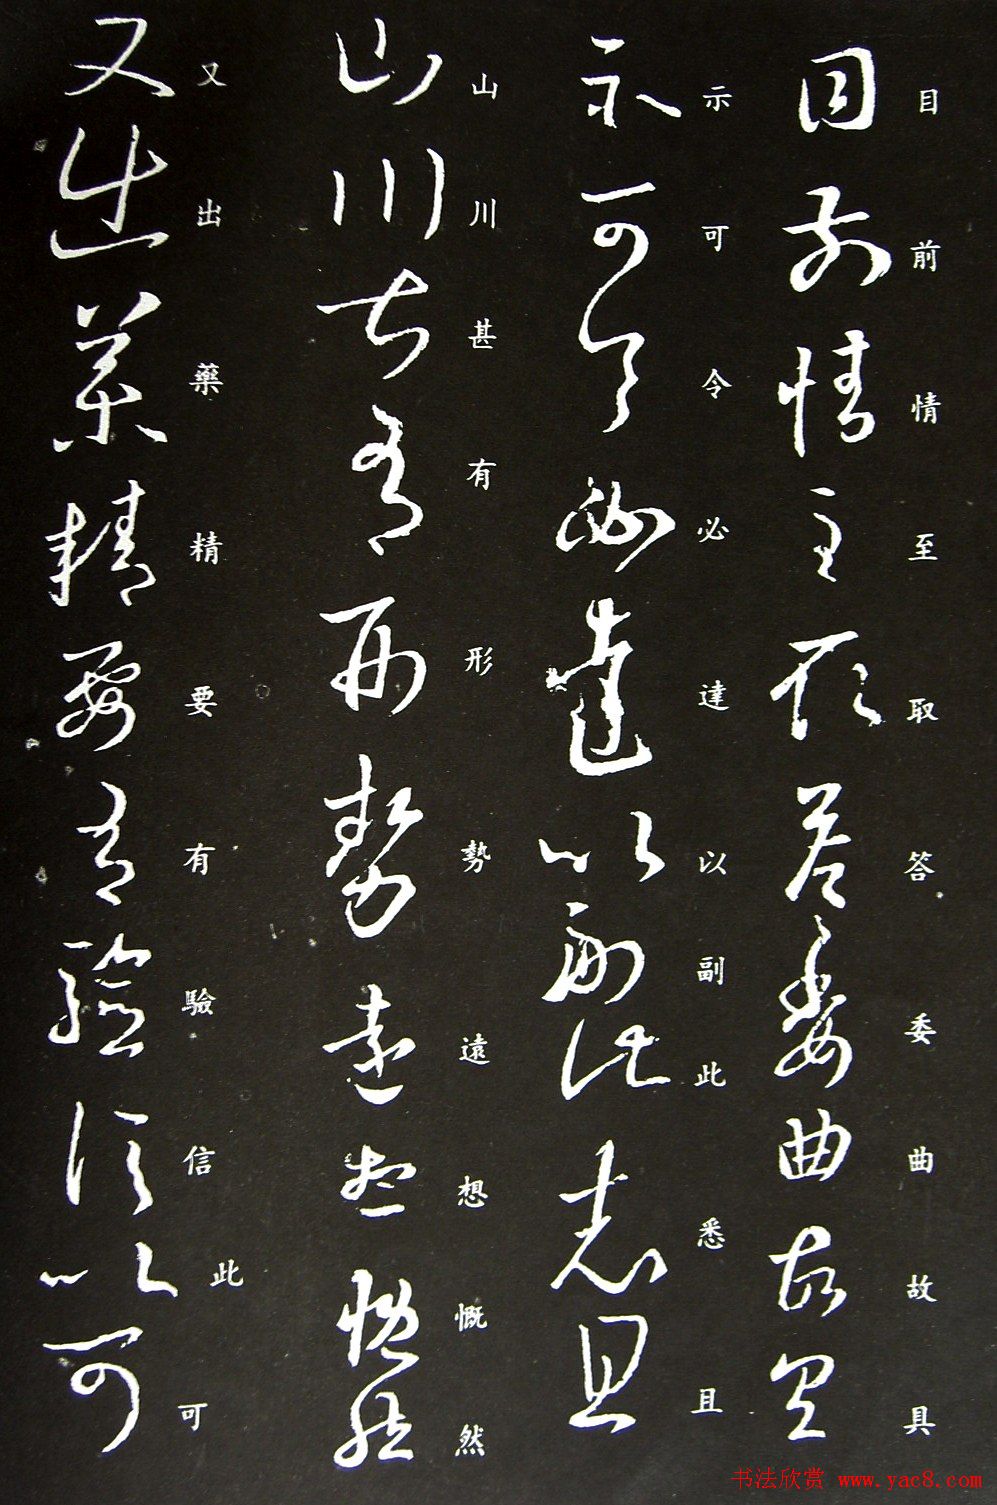 目前情至取答委曲故具
示可令必達以副此悉且
山川甚有形勢遠想慨然
又出藥精要有驗信此可
书法欣赏 www.yac8.com